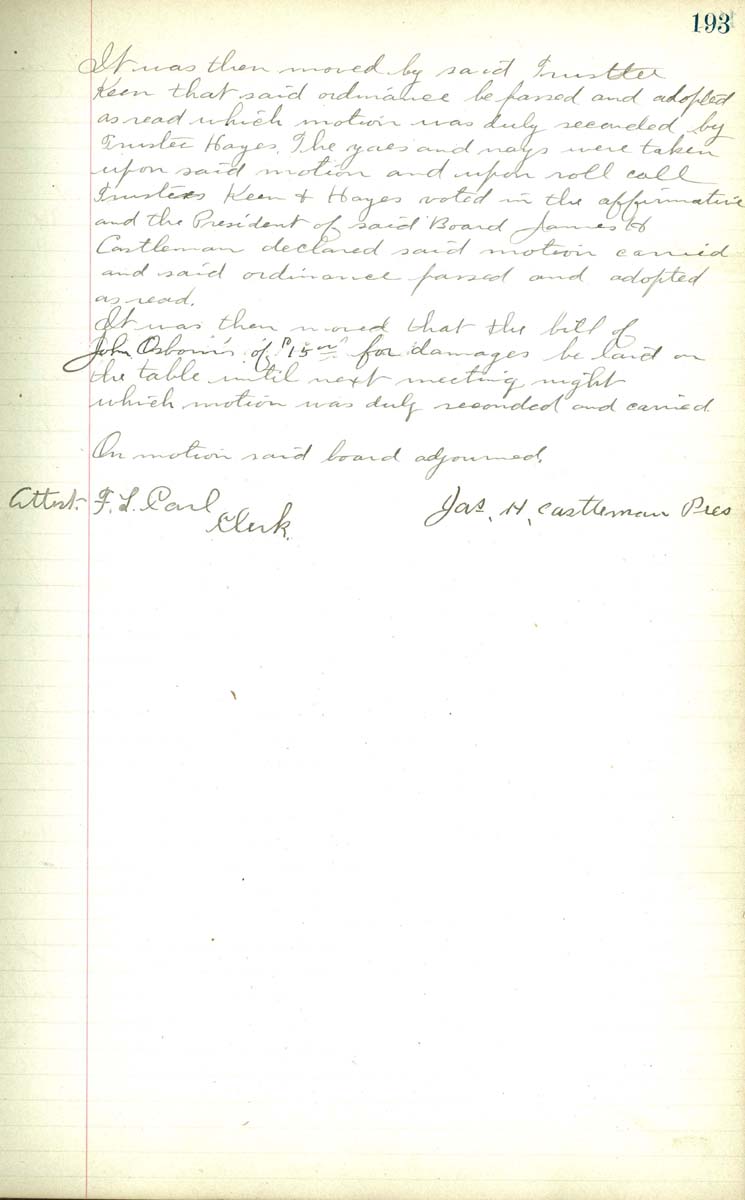 193
It was then moved by said Trusttee
Keen that said ordinance be passed and adopted
as read which motion was duly seconded by
Trustee Hayes. The yaes and nays were taken
upon said motion and upon roll call
Trustees Keen & Hayes voted in the affirmative
and the President of said Board James H
Castleman declared said motion carried
and said ordinance passed and adopted
as read.
It was then moved that the bill of
John Osborn's of $15 00 for damages be laid on
the table until next meeting night
which motion was duly seconded and carried
On motion said board adjourned.
Attest. F. L. Carl Jas. H. Castleman Pres
Clerk.